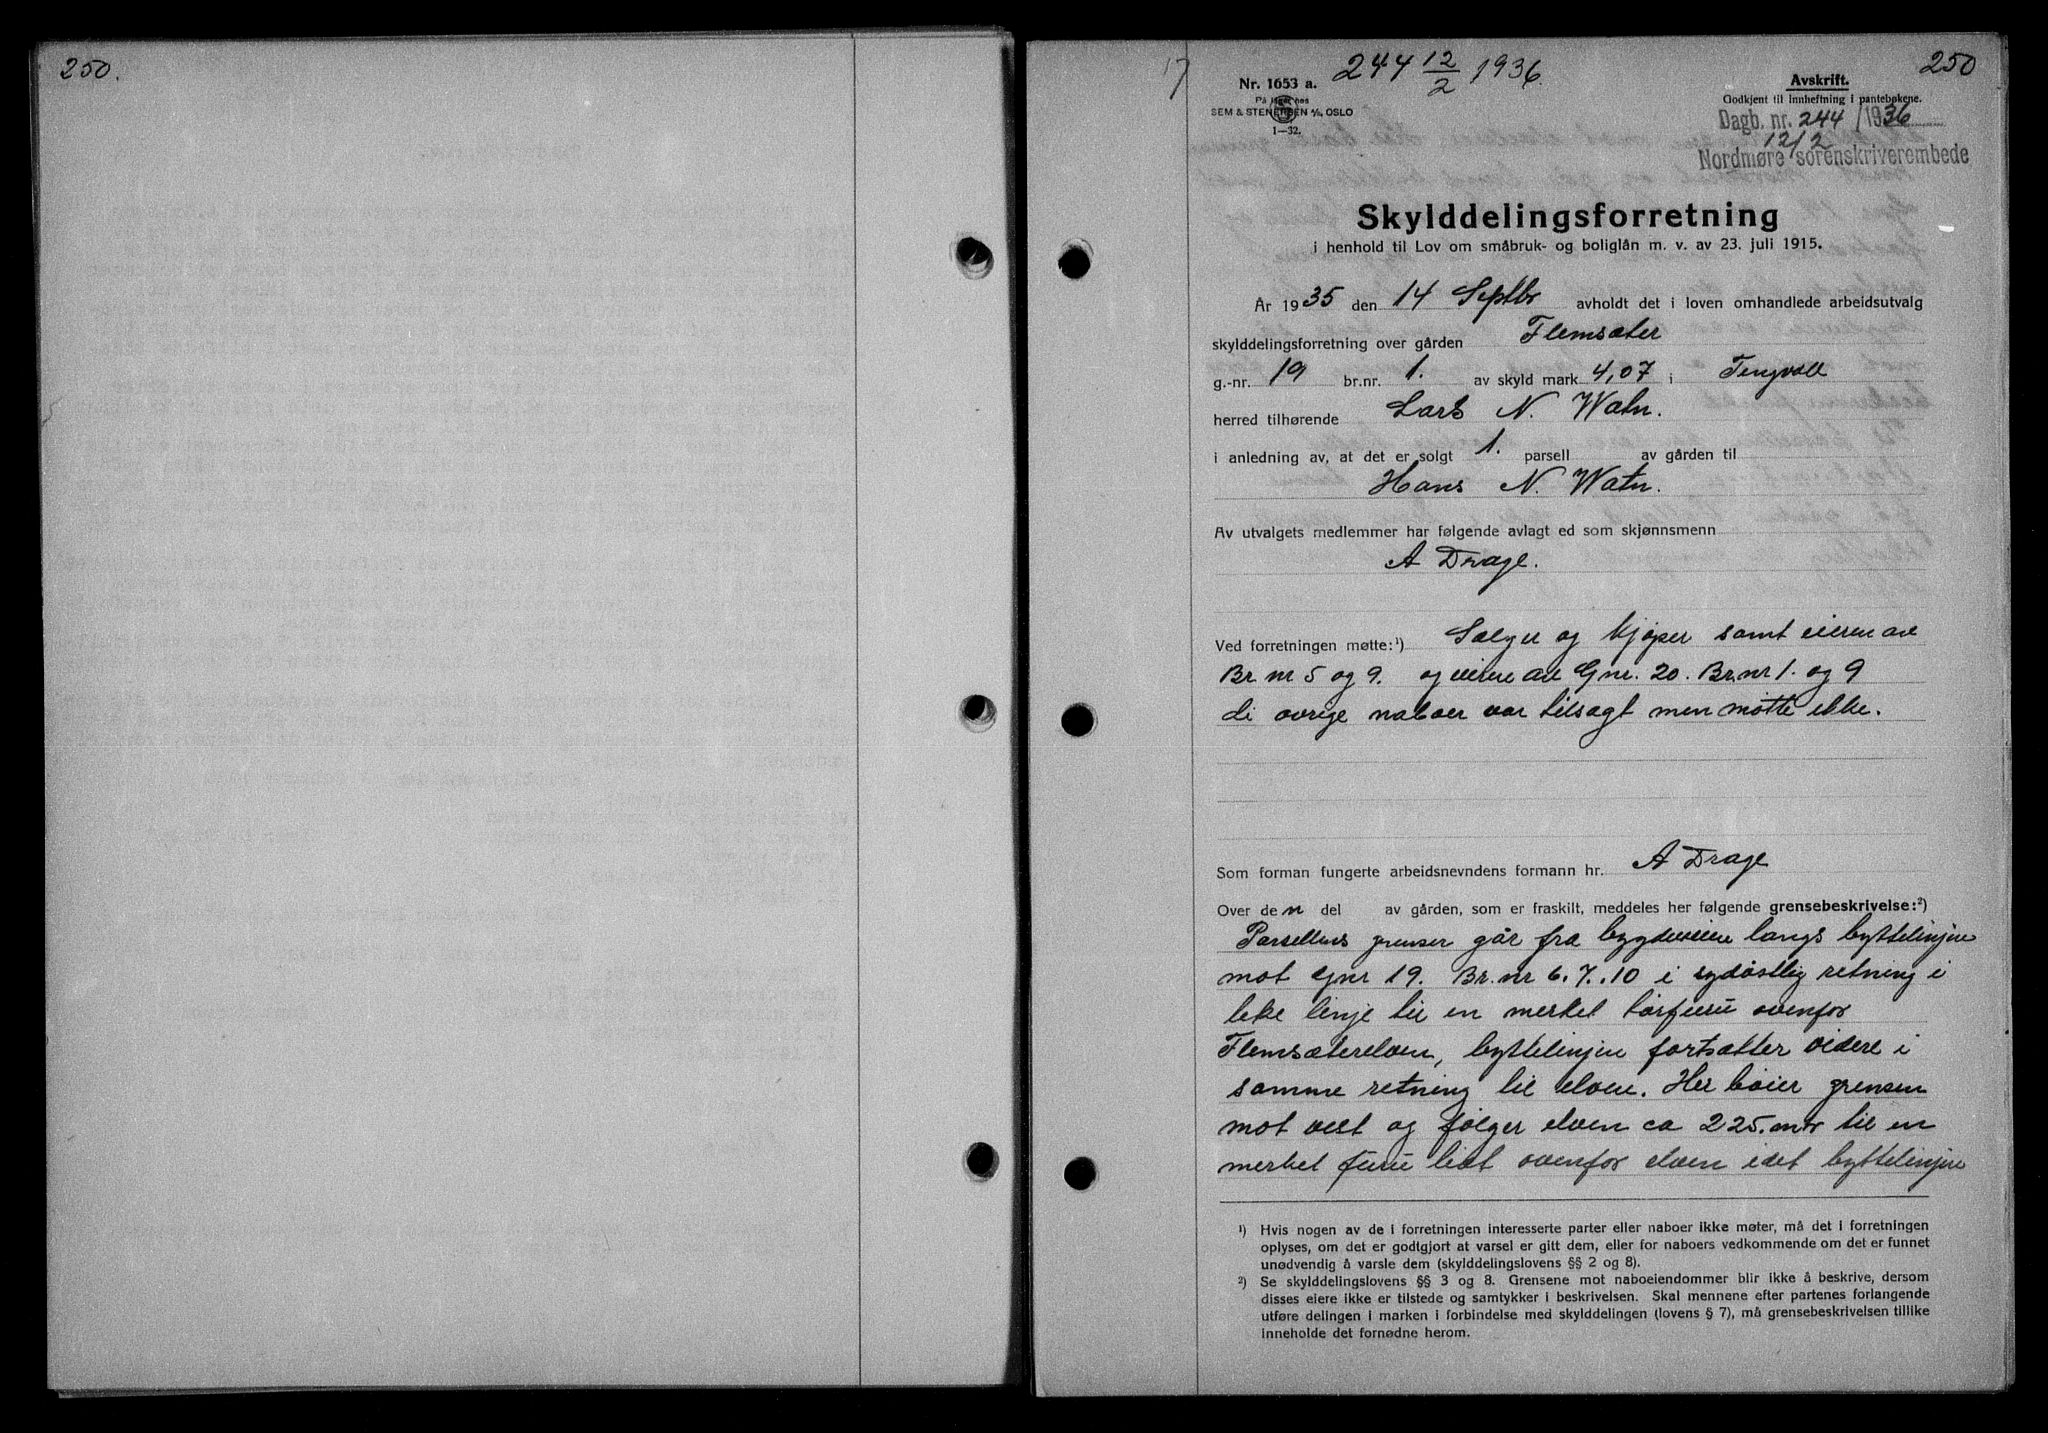 250.
17
244 12/2 1936.
250
Nr. 1653 a.
På lager hos
SEM & STENERSEN A/S, OSLO
1—32.
Avskrift.
Godkjent til innheftning i pantebøkene.
Dagb. nr. 244 / 1936
12/2
Nordmøre sorenskriverembede
Skylddelingsforretning
i henhold til Lov om småbruk- og boliglån m. v. av 23. juli 1915.
År 1935 den 14 Septbr avholdt det i loven omhandlede arbeidsutvalg
skylddelingsforretning over gården Flemsæter
g.-nr. 19 br.nr. 1. av skyld mark 4,07 i Tingvoll
herred tilhørende Lars N. Watn.
i anledning av, at det er solgt 1. parsell av gården til
Hans N. Watn.
Av utvalgets medlemmer har følgende avlagt ed som skjønnsmenn
A Drage.
Ved forretningen møtte:¹) Sælger og kjøper samt eieren av
Br nr 5 og 9. og eieren av Gnr. 20. Br.nr 1. og 9
de øvrige naboer var tilsagt men møtte ikke.
Som forman fungerte arbeidsnevndens formann hr. A Drage
Over den del av gården, som er fraskilt, meddeles her følgende grensebeskrivelse:²)
Parsellens grenser går fra bygdeveien langs byttelinjen
mot Gnr 19. Br.nr 6.7.10 i sydøstlig retning i
beke linje til en merket tørfuru ovenfor
Flemsæterelven, byttelinjen fortsætter videre i
samme retning til elven. Her bøier grensen
mot vest og følger elven ca 225.mtr til en
merket furu lidt ovenfor elven i det byttelinjen
¹) Hvis nogen av de i forretningen interesserte parter eller naboer ikke møter, må det i forretningen
oplyses, om det er godtgjort at varsel er gitt dem, eller for naboers vedkommende om det er funnet
unødvendig å varsle dem (skylddelingslovens §§ 2 og 8).
²) Se skylddelingslovens §§ 3 og 8. Grensene mot naboeiendommer blir ikke å beskrive, dersom
disses eiere ikke er tilstede og samtykker i beskrivelsen. Skal mennene efter partenes forlangende
utføre delingen i marken i forbindelse med skylddelingen (lovens § 7), må grensebeskrivelsen tillike
inneholde det fornødne herom.